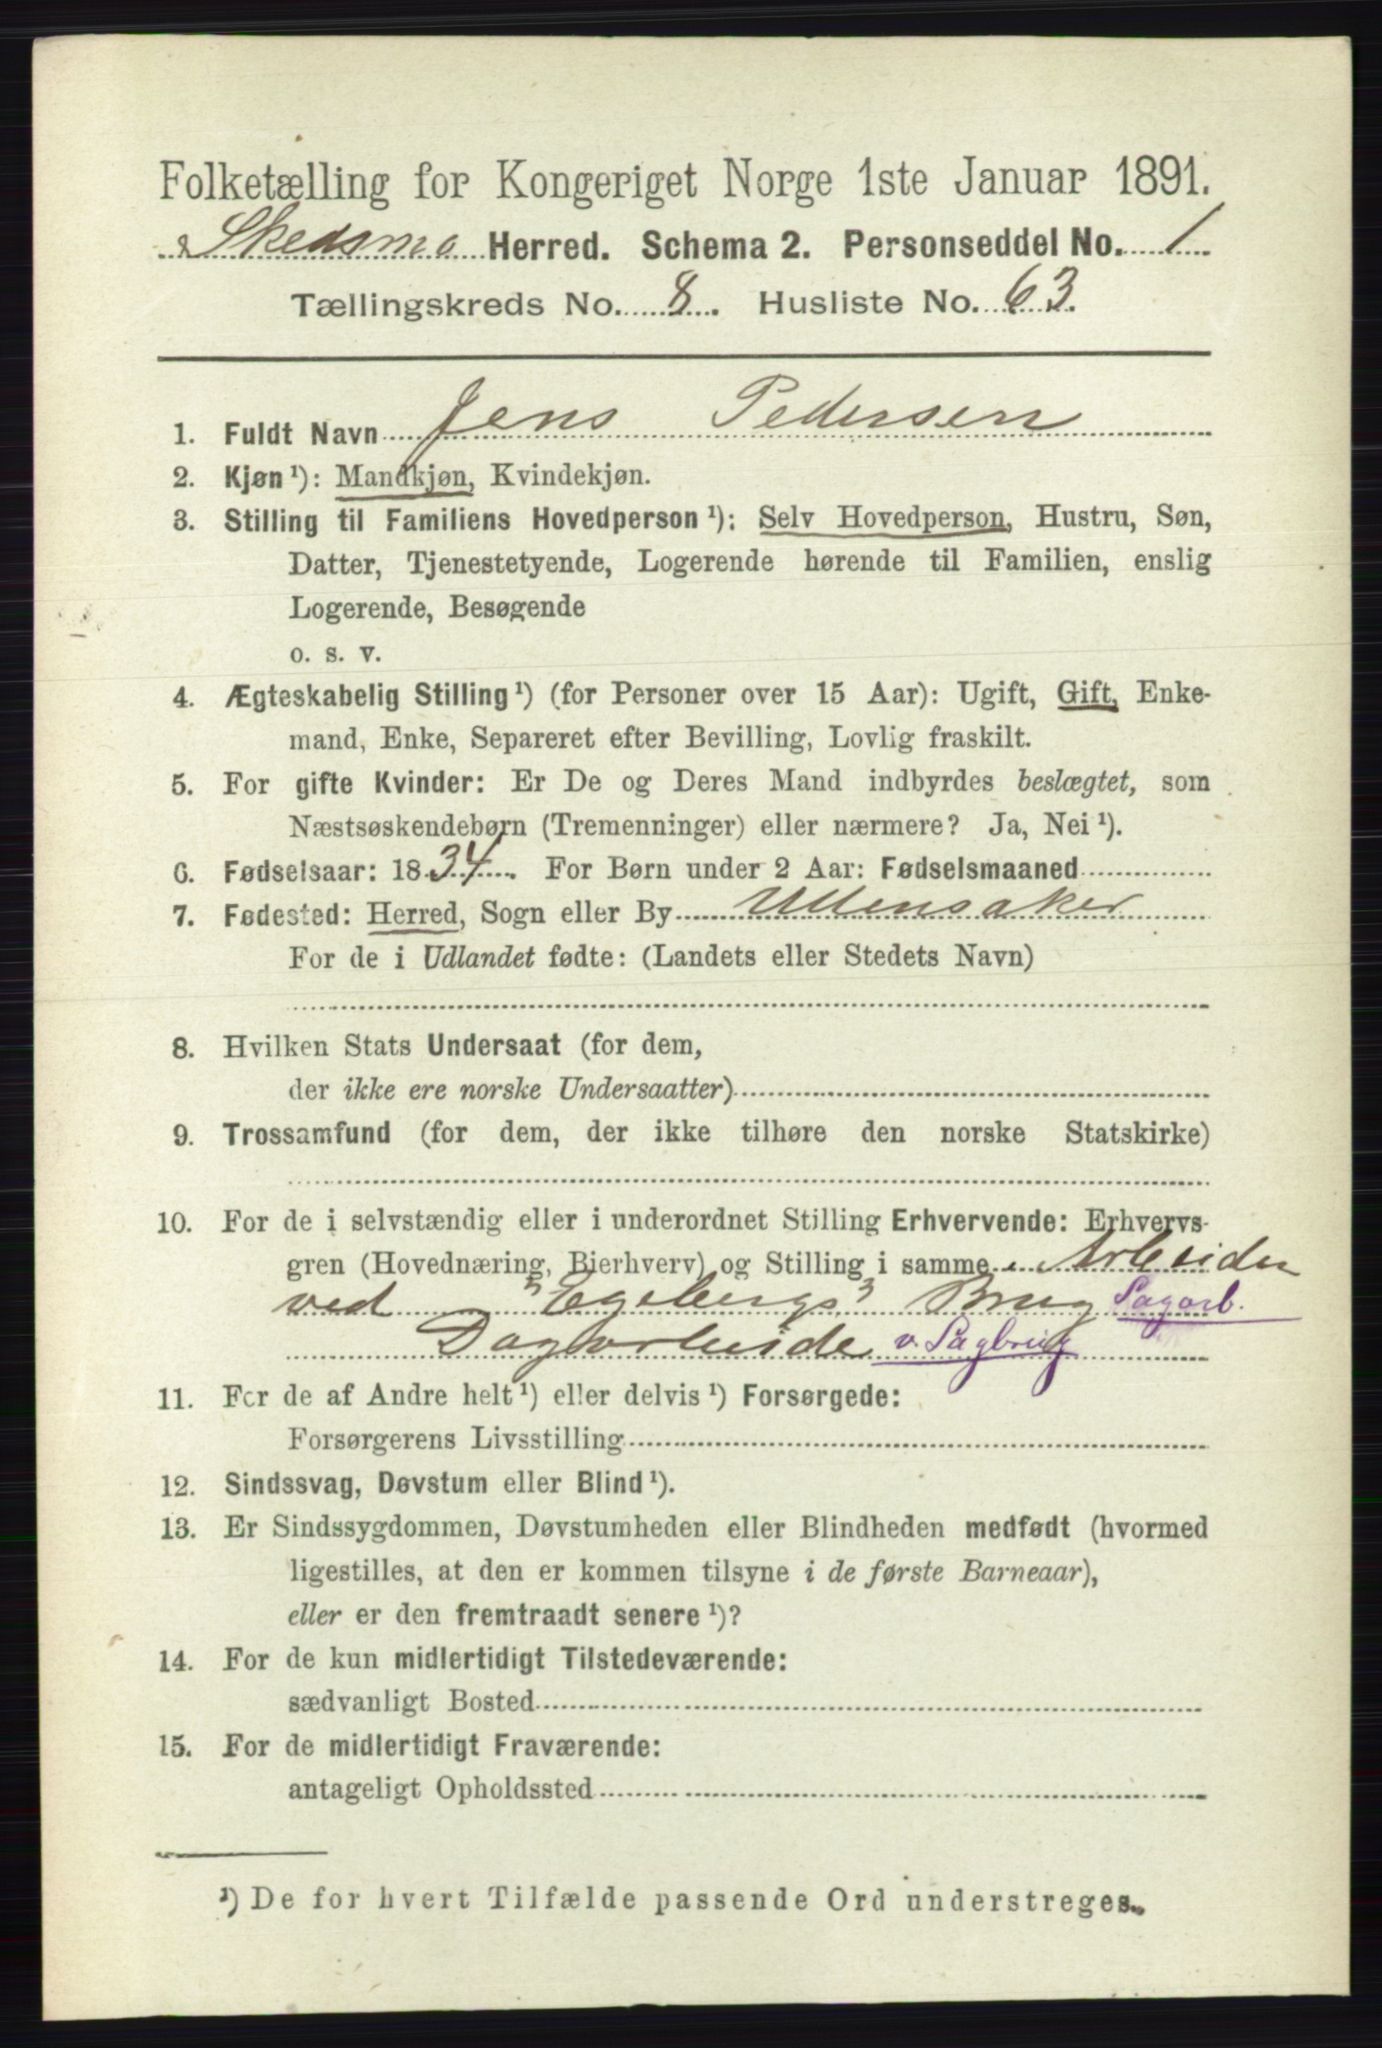 Folketælling for Kongeriget Norge 1ste Januar 1891.
Skedsmo Herred. Schema 2. Personseddel No. 1
Tællingskreds No. 8. Husliste No. 63.
1. Fuldt Navn Jens Pedersen
2. Kjøn¹): Mandkjøn, Kvindekjøn.
3. Stilling til Familiens Hovedperson¹): Selv Hovedperson, Hustru, Søn,
Datter, Tjenestetyende, Logerende hørende til Familien, enslig
Logerende, Besøgende
o. s. v.
4. Ægteskabelig Stilling¹) (for Personer over 15 Aar): Ugift, Gift, Enke-
mand, Enke, Separeret efter Bevilling, Lovlig fraskilt.
5. For gifte Kvinder: Er De og Deres Mand indbyrdes beslægtet, som
Næstsøskendebørn (Tremenninger) eller nærmere? Ja, Nei¹).
6. Fødselsaar: 1834. For Børn under 2 Aar: Fødselsmaaned
7. Fødested: Herred, Sogn eller By Ullensaker
For de i Udlandet fødte: (Landets eller Stedets Navn)
8. Hvilken Stats Undersaat (for dem,
der ikke ere norske Undersaatter)
9. Trossamfund (for dem, der ikke tilhøre den norske Statskirke)
10. For de i selvstændig eller i underordnet Stilling Erhvervende: Erhvervs-
gren (Hovednæring, Bierhverv) og Stilling i samme Arbeider
ved "Egebergs" Brug Sagarb.
Dagarbeide v. Sagbrug
11. For de af Andre helt¹) eller delvis¹) Forsørgede:
Forsørgerens Livsstilling
12. Sindssvag, Døvstum eller Blind¹).
13. Er Sindssygdommen, Døvstumheden eller Blindheden medfødt (hvormed
ligestilles, at den er kommen tilsyne i de første Barneaar),
eller er den fremtraadt senere¹)?
14. For de kun midlertidigt Tilstedeværende:
sædvanligt Bosted
15. For de midlertidigt Fraværende:
antageligt Opholdssted
¹) De for hvert Tilfælde passende Ord understreges.